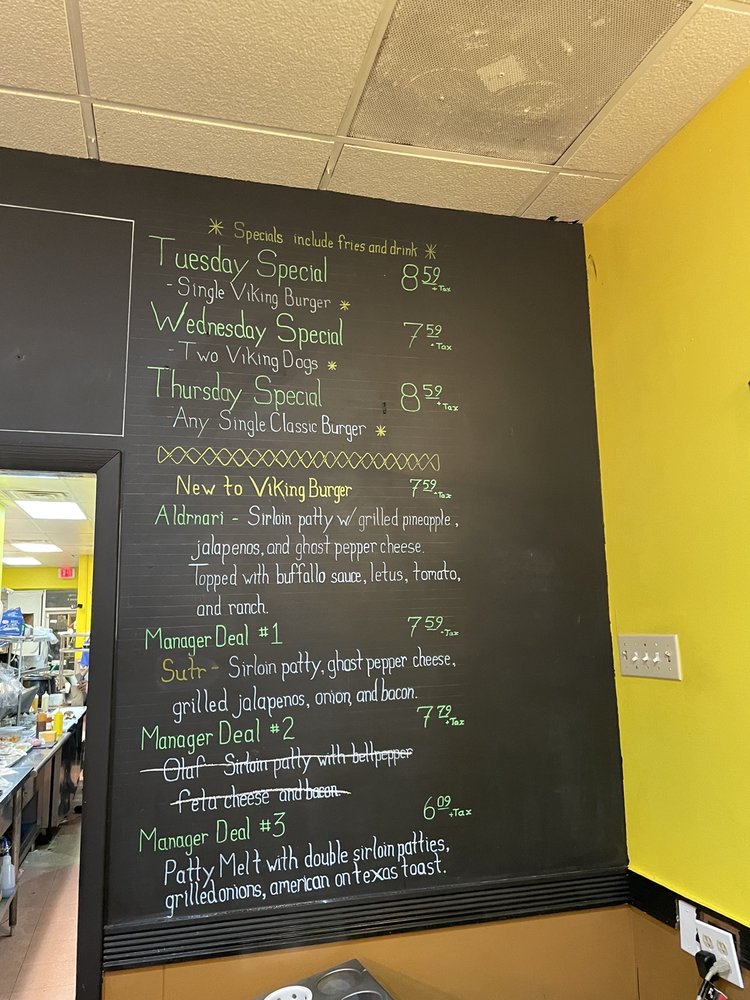 * Specials include fries and drink *
Tuesday Special 8 59 + Tax
- Single Viking Burger *
Wednesday Special 7 59 + Tax
- Two Viking Dogs *
Thursday Special 8 59 + Tax
Any Single Classic Burger *
New to Viking Burger 7 59 + Tax
Aldrnari - Sirloin patty w/ grilled pineapple,
jalapenos, and ghost pepper cheese.
Topped with buffallo sauce, letus, tomato,
and ranch.
Manager Deal #1 7 59 + Tax
Sutr - Sirloin patty, ghost pepper cheese,
grilled jalapenos, onion, and bacon.
Manager Deal #2 7 79 + Tax
Olaf - Sirloin patty with bellpepper
feta cheese and bacon.
Manager Deal #3 6 09 + Tax
Patty Melt with double sirloin patties,
grilled onions, american on texas toast.